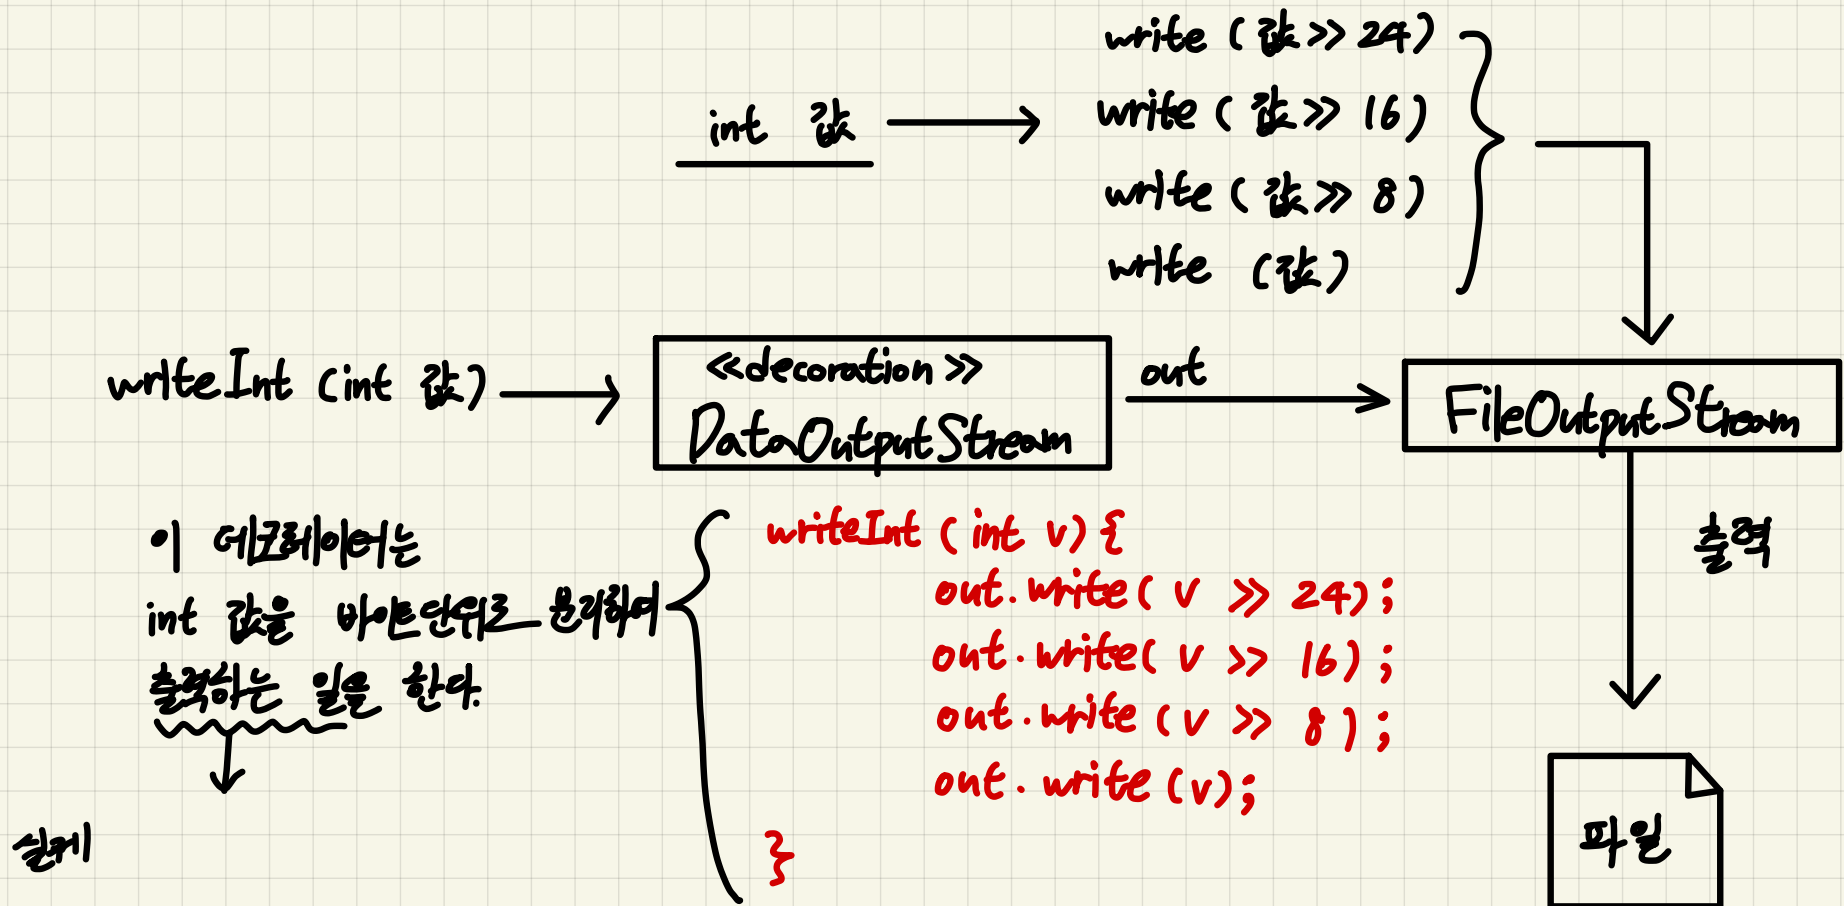 write (값 >> 24)
int 값
write (값 >> 16)
write (값 >> 8)
write (값)
writeInt (int 값)
<<decoration>>
DataOutputStream
out
FileOutputStream
이 데코레이터는
int 값을 바이트단위로 분리하여
출력하는 일을 한다.
실제
writeInt (int v) {
out.write( v >> 24);
out.write( v >> 16);
out.write (v >> 8);
out.write (v);
}
출력
파일